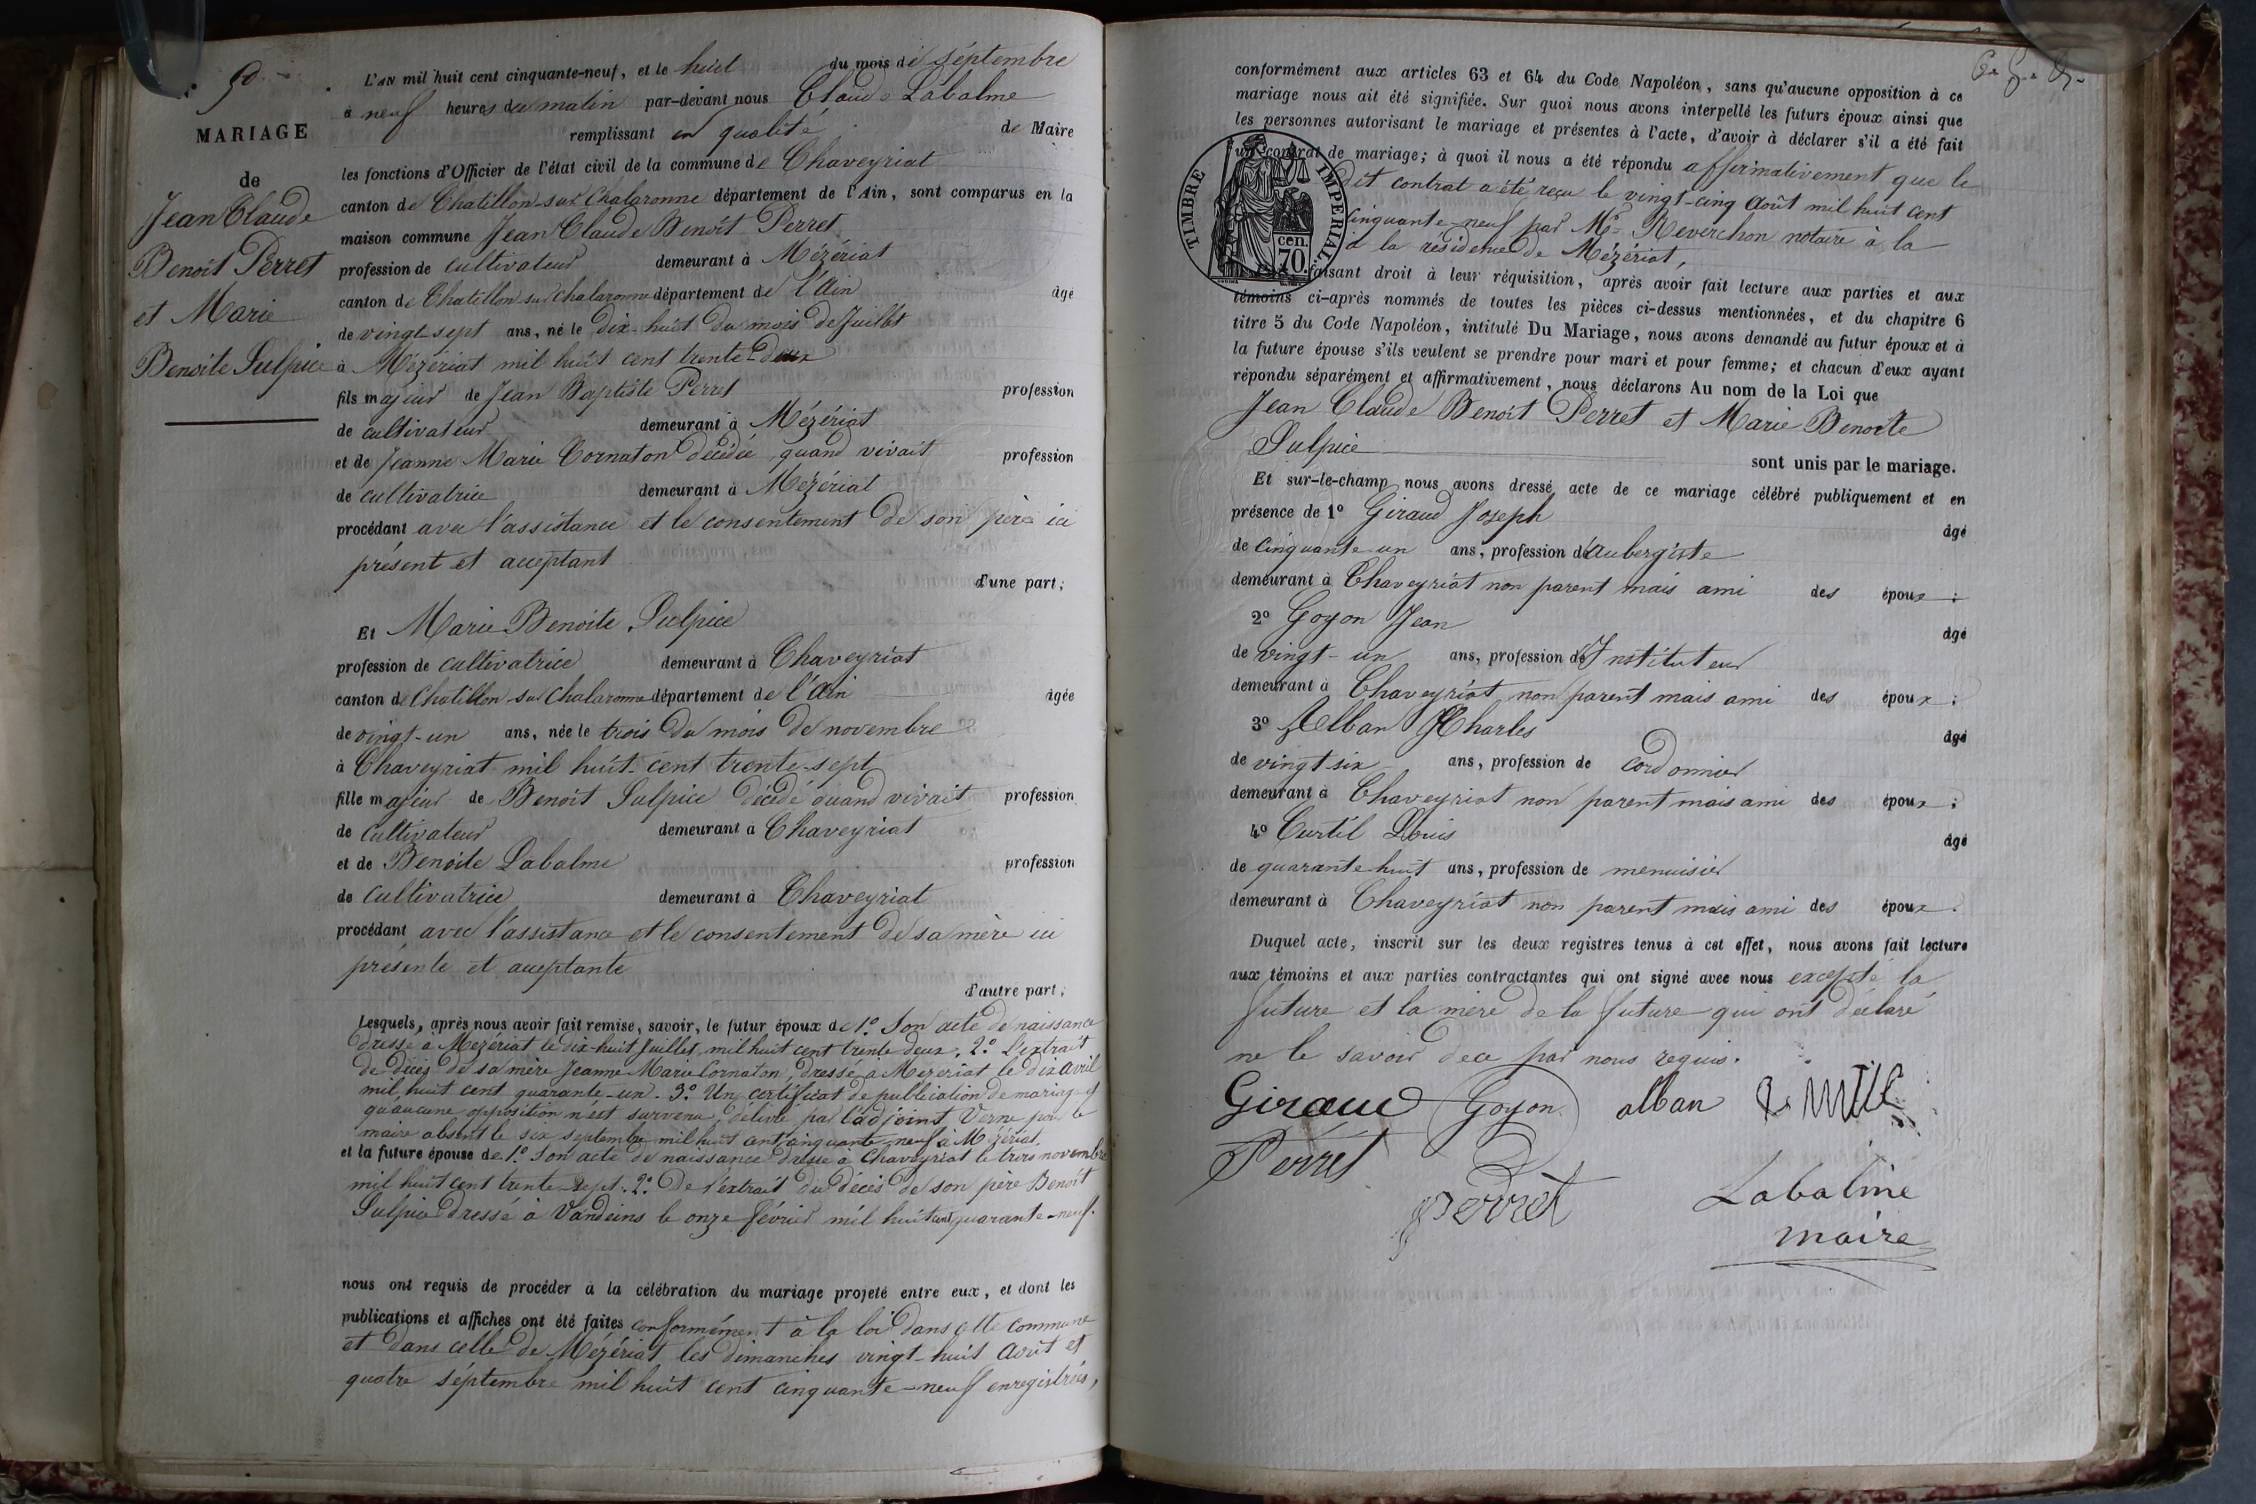 9o
MARIAGE
de
Jean Claude
Benoit Perret
et Marie
Benoite Sulpice
L'AN mil huit cent cinquante-neuf, et le huit du mois de séptembre
à neuf heures du matin par-devant nous Claude Labalme
remplissant en qualité de Maire
les fonctions d'Officier de l'état civil de la commune de Chaveyriat
canton de Chatillon-sur Chalaronne département de l'Ain, sont comparus en la
maison commune Jean Claude Benoit Perret
profession de cultivateur demeurant à Mézériat
canton de Chatillon sur chalaronne département de l'Ain âgé
de vingt-sept ans, né le dix-huit du mois de Juillet
à Mézériat mil huit cent trente-deux
fils majeur de Jean Baptiste Perret profession
de cultivateur demeurant à Mézériat
et de Jeanne Marie Cornaton décédée quand vivait profession
de cultivatrice demeurant à Mézériat
procédant avec l'assistance et le consentement de son père ici
présent et acceptant
d'une part;
Et Marie Benoite Sulpice
profession de cultivatrice demeurant à Chaveyriat
canton de Chatillon-sur Chalaronne département de l'Ain âgée
de vingt-un ans, née le trois du mois de novembre
à Chaveyriat mil huit-cent trente-sept
fille majeur de Benoit Sulpice décédé quand vivait profession
de cultivateur demeurant à Chaveyriat
et de Benoite Labalme profession
de cultivatrice demeurant à Chaveyriat
procédant avec l'assistance et le consentement de sa mère ici
présente et acceptante
d'autre part;
Lesquels, après nous avoir fait remise, savoir, le futur époux de 1.o Son acte de naissance
dressé à Mézériat le dix-huit Juillet mil huit cent trente deux, 2.o L'extrait
de décès de sa mère Jeanne Marie Cornaton, dressé à Mézériat le dix avril
mil huit cent quarante-un. 3.o Un certificat de publication de mariage et
qu'aucune opposition n'est survenu, délivré par l'adjoint Verne pour le
maire absent le six septembre mil huit cent cinquante-neuf à Mézériat.
et la future épouse de 1.o Son acte de naissance dressé à Chaveyriat le trois novembre
mil huit cent trente-sept. 2.o De l'extrait du décès de son père Benoit
Sulpice dressé à Vandeins le onze février mil huit cent quarante-neuf.
nous ont requis de procéder à la célébration du mariage projeté entre eux, et dont les
publications et affiches ont été faites conformément à la loi dans cette commune
et dans celle de Mézériat les dimanches vingt-huit Août et
quatre séptembre mil huit cent cinquante-neuf enregistrées,
conformément aux articles 63 et 64 du Code Napoléon, sans qu'aucune opposition à ce
mariage nous ait été signifiée. Sur quoi nous avons interpellé les futurs époux ainsi que
les personnes autorisant le mariage et présentes à l'acte, d'avoir à déclarer s'il a été fait
un contrat de mariage; à quoi il nous a été répondu affirmativement que le
dit contrat a été reçu le vingt-cinq Août mil huit cent
cinquante-neuf par Me Reverchon notaire à la
à la résidence de Mézériat,
TIMBRE IMPERIAL
cen.
70.
faisant droit à leur réquisition, après avoir fait lecture aux parties et aux
témoins ci-après nommés de toutes les pièces ci-dessus mentionnées, et du chapitre 6
titre 5 du Code Napoléon, intitulé Du Mariage, nous avons demandé au futur époux et à
la future épouse s'ils veulent se prendre pour mari et pour femme; et chacun d'eux ayant
répondu séparément et affirmativement, nous déclarons Au nom de la Loi que
Jean Claude Benoit Perret et Marie Benoite
Sulpice
sont unis par le mariage.
Et sur-le-champ nous avons dressé acte de ce mariage célébré publiquement et en
présence de 1o Giraud Joseph âgé
de cinquante-un ans, profession d'aubergiste
demeurant à Chaveyriat non parent mais ami des époux;
2o Goyon Jean âgé
de vingt-un ans, profession d'Instituteur
demeurant à Chaveyriat non parent mais ami des époux;
3o Alban Charles âgé
de vingt six ans, profession de cordonnier
demeurant à Chaveyriat non parent mais ami des époux;
4o Curtil Louis âgé
de quarante-huit ans, profession de menuisier
demeurant à Chaveyriat non parent mais ami des époux.
Duquel acte, inscrit sur les deux registres tenus à cet effet, nous avons fait lecture
aux témoins et aux parties contractantes qui ont signé avec nous excepté la
future et la mère de la future qui ont déclaré
ne le savoir de ce par nous requis.
Giraud Goyon alban
Perret
Perret
Labalme
maire